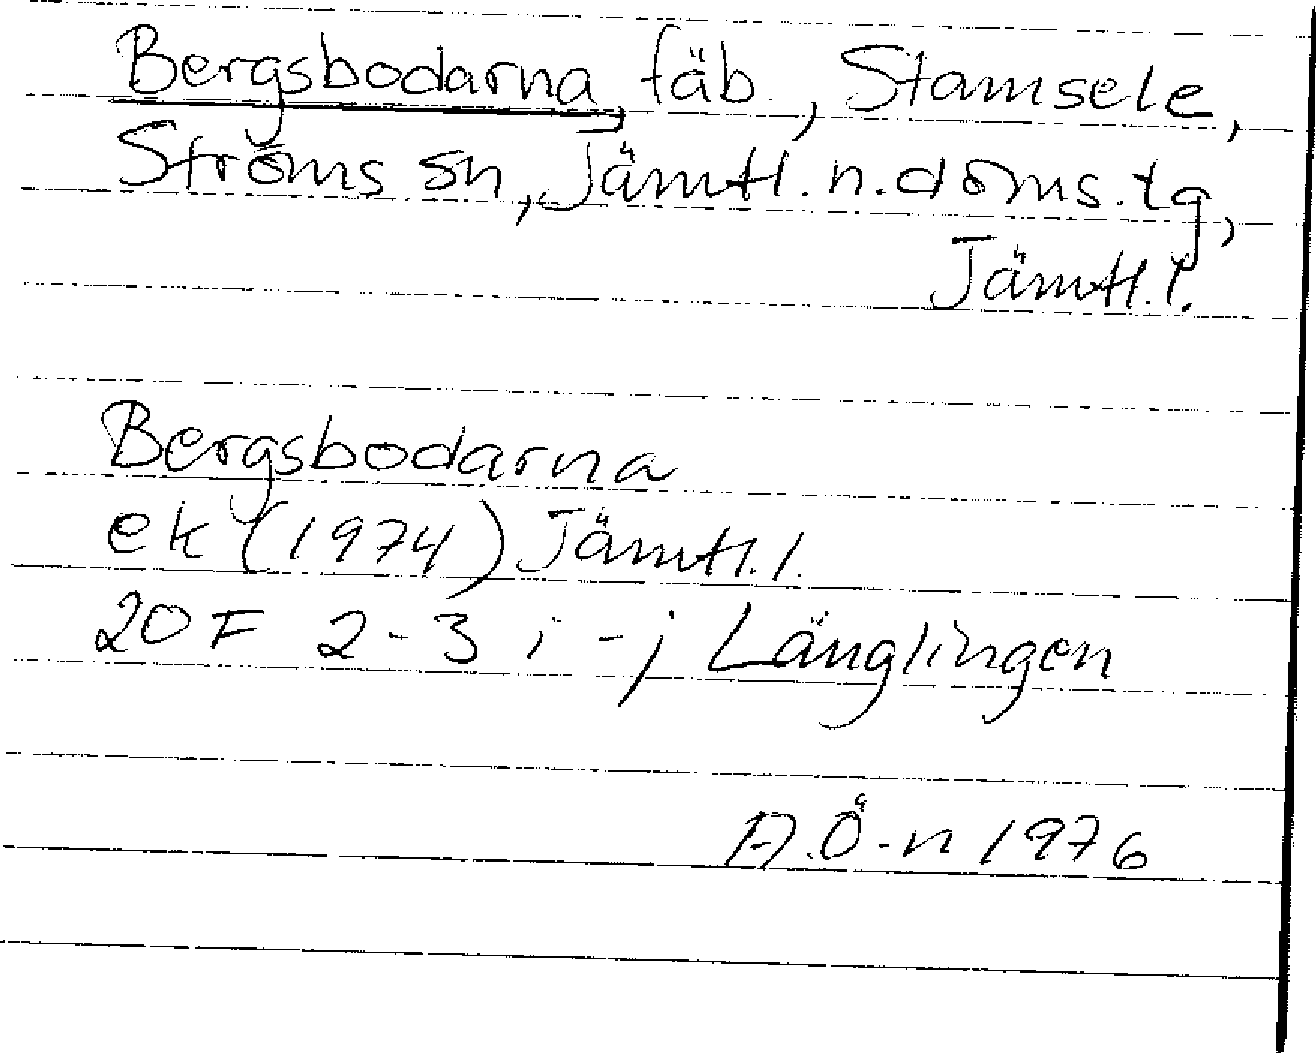 Bergsbodarna, fäb., Stamsele,
Ströms sn, Jämtl. n. doms. tg,
Jämtl. l.
Bergsbodarna
ek (1974) Jämtl. l.
20 F 2-3 i-j Länglingen
A.Ö-n 1976